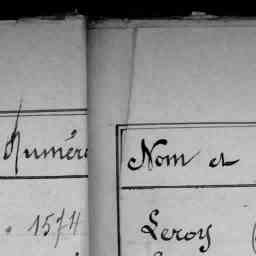 Numéro
Nom et
1574
Leroy